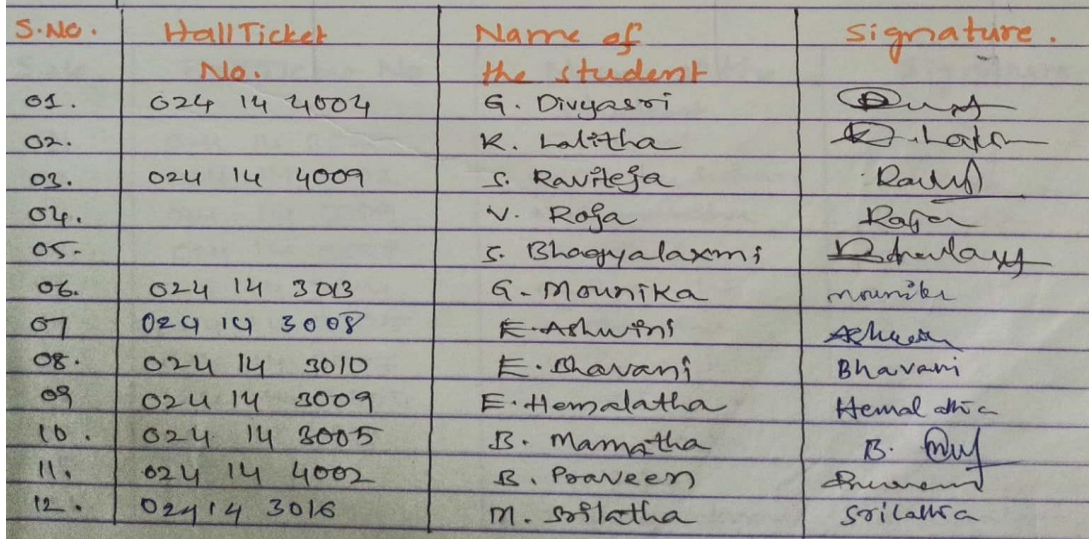 S.No. Hall Ticket Name of Signature.
No. the student
01. 024 14 4004 G. Divyasri
02. K. Lalitha
03. 024 14 4009 S. Raviteja
04. V. Roja Roja
05. S. Bhagyalaxmi
06. 024 14 3013 G. Mounika mounika
07 024 14 3008 E. Ashwini
08. 024 14 3010 E. Bhavani Bhavani
09 024 14 3009 E. Hemalatha Hemalatha
10. 024 14 3005 B. Mamatha B.
11. 024 14 4002 B. Praveen
12. 024 14 3016 M. Srilatha Srilatha